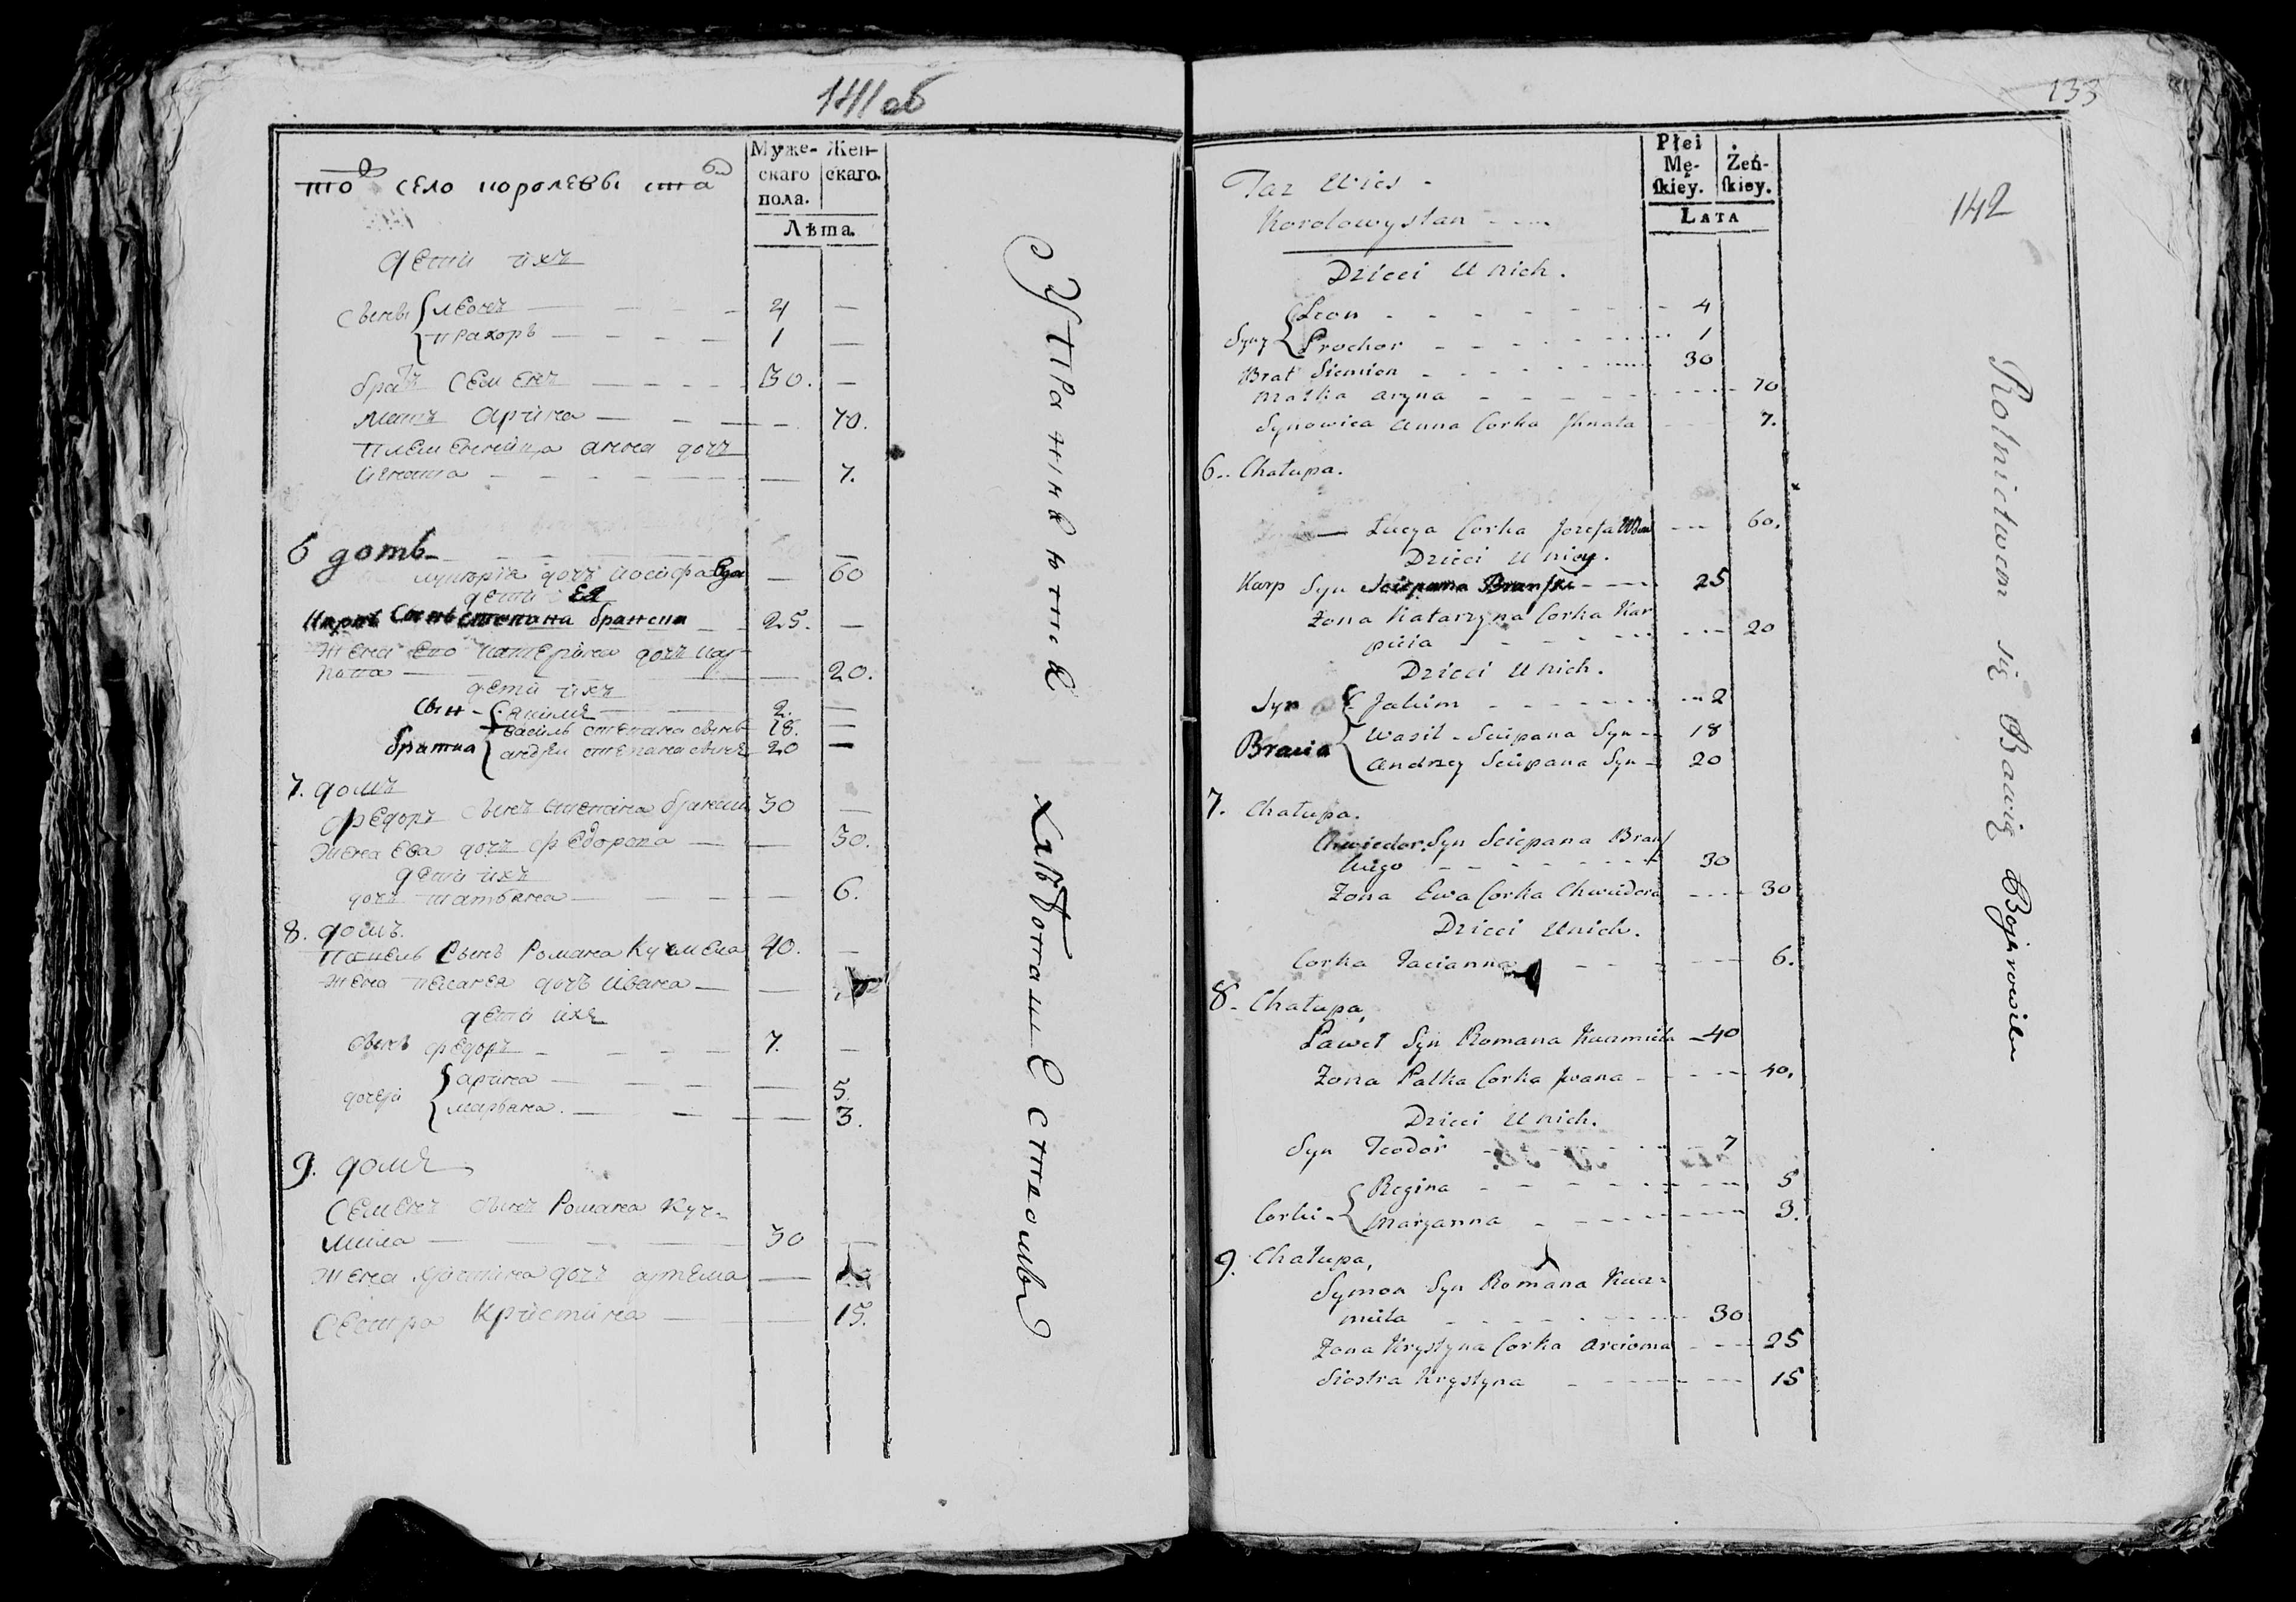 141 об
Муже-
скаго
пола.
Жен-
скаго.
Лѣта.
тоѣ село королевы ста
дети ихъ
Сынвы леонъ 4 —
прахоръ 1 —
братъ семенъ 30. —
мать арина — 70.
племеннийца анна дочъ
игната — 7.
6 домъ
люцѣрія дочъ иосифа вдо — 60
дети Ея
карпъ Сынъ степана брански 25. —
жена его катерына дочъ кар-
пата — 20.
дети ихъ
Сын якимъ 2. —
василь степана сынъ 18. —
братиа андреи степана сынъ 20 —
7. домъ
федоръ сынъ степана бранский 30 —
жена ева дочъ федорона — 30.
дети ихъ
дочъ татьяна — 6.
8. домъ.
павелъ сынъ Романа Кучмела 40. —
жена пелагея дочъ ивана —
дети ихъ
сынъ федоръ 7. —
дочери арина — 5.
марьяна. — 3.
9. домъ
семенъ сынъ Романа куч-
мила 30 —
жена христина дочъ артема —
сестра кристина — 15.
Упражнѣніе
хлѣбопашествомъ
133
142
Płei
Mę-
ſkiey.
Żeń-
ſkiey.
LATA
Taz Wies -
Korolowystan
Dzieci U nich.
Syny Leon 4
Prochor 1
Brat Siemien 30
Matka Aryna 70
Synowica Anna Corka Jhnata 7.
6. Chałupa.
Łucya Corka Jozefa Wdow 60.
Dzieci U niey.
Karp Syn Sciepana Branſki 25
Zona Katarzyna Corka Kar
piia 20
Dzieci U nich.
Syn Jakim 2
Wasil Sciepana Syn 18
Bracia Andrzey Sciepana Syn 20
7. Chałupa.
Chwiedor Syn Sciepana Branſ
kiego 30
Zona Ewa Corka Chwiedora 30
Dzieci U nich.
Corka Tacianna 6.
8. Chałupa,
Paweł Syn Romana Kuczmiela 40
Zona Palka Corka Jwana 40.
Dzieci U nich.
Syn Teodor 7
Regina 5
Corki Maryanna 3.
9. Chałupa,
Symon Syn Romana Kucz-
miela 30
Zona Krystyna Corka Arcioma 25
Siostra Krystyna 15
Rolnictwem się Bawią